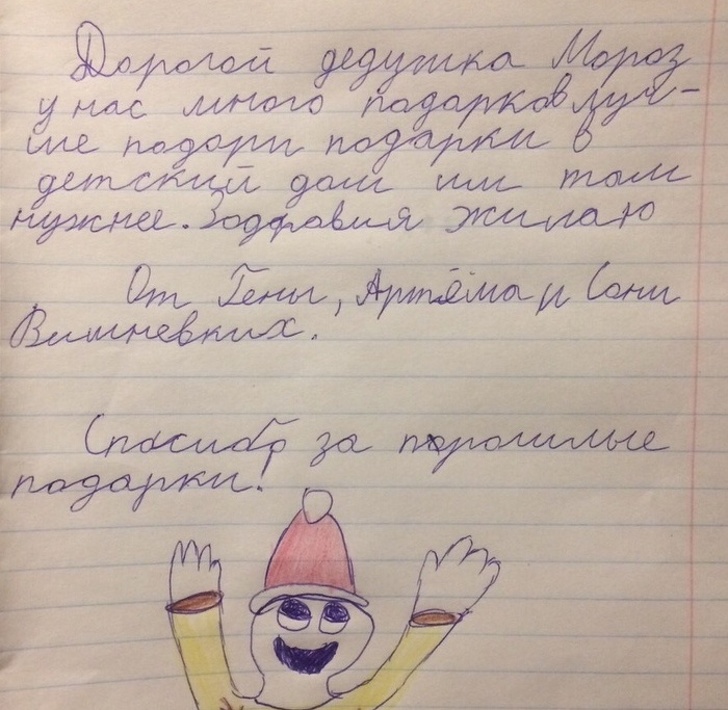 Дорогой дедушка Мороз
у нас много подарков луч-
ше подари подарки в
детский дом им там
нужнее. Здравия жилаю
От Гены, Артёма и Сони
Вишневких.
Спосибо за прошлые
подарки!